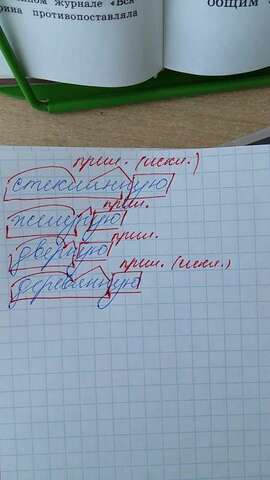 ном журнале «Вск
рина противопоставляла
общим
прил. (искл.)
стеклянную
прил.
прил.
дверную
прил. (искл.)
деревянную